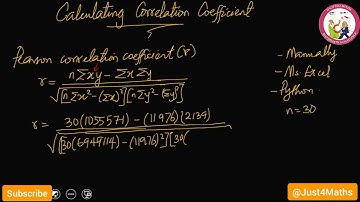 Calculating Correlation Coefficient
Pearson correlation coefficient (r)
r = nΣxy - ΣxΣy / √[nΣx² - (Σx)²][nΣy² - (Σy)²]
r = 30(1055571) - (11976)(2139) / √[30(6949114) - (11976)²][30(
- Manually
- Ms Excel
- Python
n = 30
Subscribe
@Just4Maths